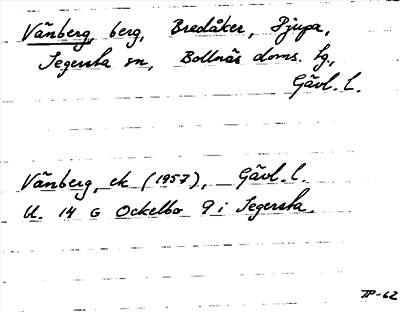 Vänberg, berg, Bredåker, Djupa,
Segersta sn, Bollnäs doms. hg.,
Gävl. l.
Vänberg, ek (1957), Gävl. l.
U. 14 G Ockelbo 9 i Segersta.
TP-62